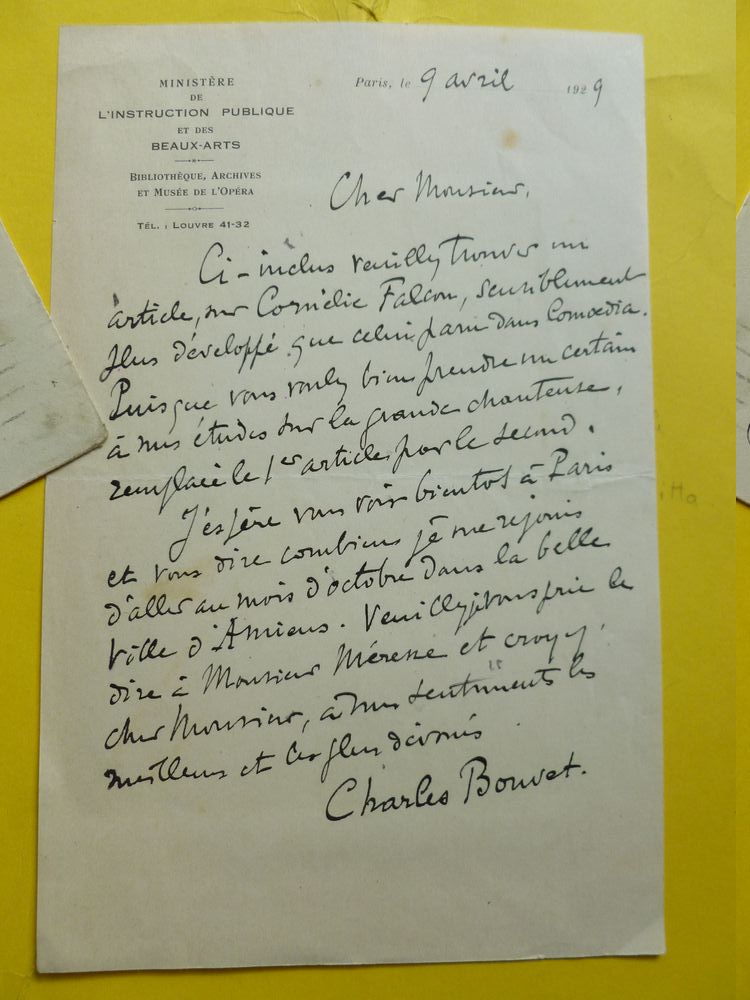 MINISTÈRE
DE
L'INSTRUCTION PUBLIQUE
ET DES
BEAUX-ARTS
BIBLIOTHÈQUE, ARCHIVES
ET MUSÉE DE L'OPÉRA
TÉL. : LOUVRE 41-32
Paris, le 9 avril 1929
Cher Monsieur,
Ci-inclus veuillez trouver un
article, sur Cornélie Falcon, sensiblement
plus développé que celui paru dans Comœdia.
Puisque vous voulez bien prendre un certain
à mes études sur la grande chanteuse,
remplacé le 1er article par le second.
J'espère vous voir bientôt à Paris
et vous dire combien je me réjouis
d'aller au mois d'octobre dans la belle
ville d'Amiens. Veuillez je vous prie le
dire à Monsieur et croyez,
cher Monsieur, à mes sentiments les
meilleurs et les plus dévoués
Charles Bouvet.